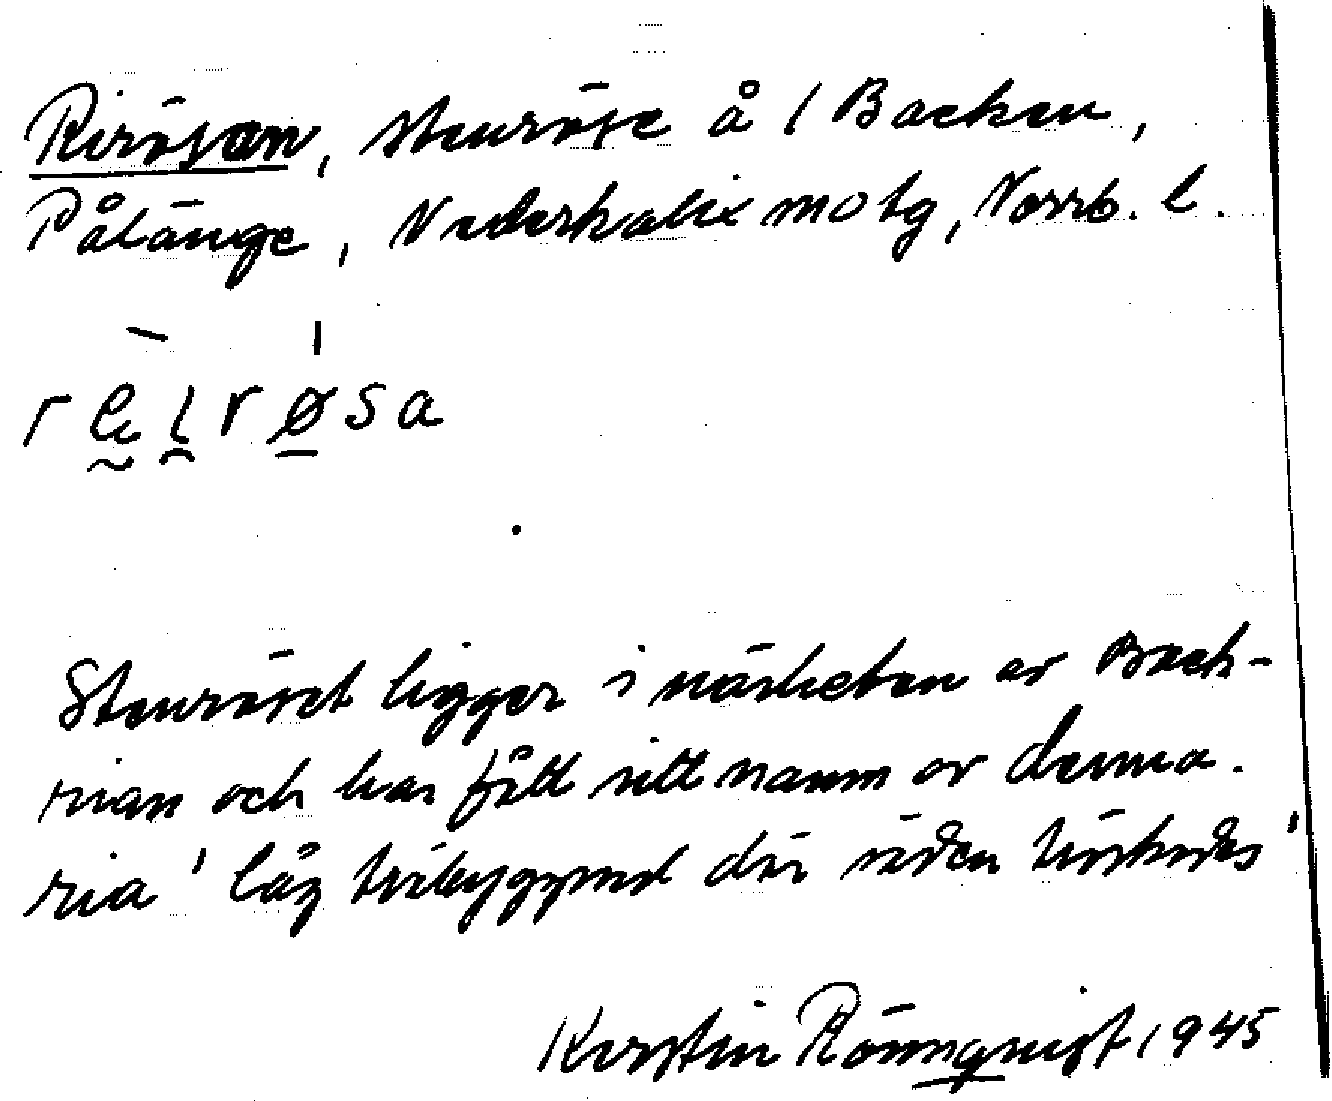 Rirösan, stenröse å 1 Backen,
Pålänge, Nederkalix motg, Norrb. l.
re̯ι̯rø̱sa
Stenröset ligger i närheten av Back-
rian och har fått sitt namn av denna.
ria ' låg träbyggnad där säden torkades '
Kerstin Rönnqvist 1945